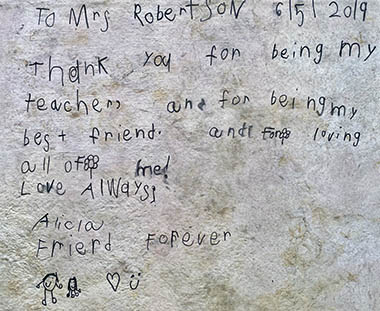 To Mrs RobertSoN 6/5/2019
Thank you for being my
teacher, and for being my
best friend. and loving
all of me!
Love AlWays,
Alicia
Frierd Forever